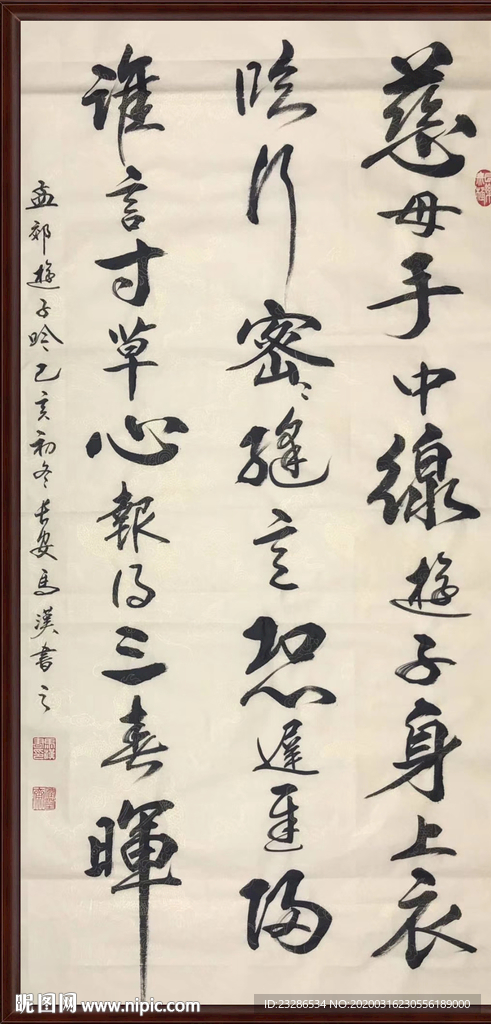 慈母手中線遊子身上衣
臨行密〻縫意恐遲遲歸
誰言寸草心報得三春暉
孟郊遊子吟己亥初冬長安馬漢書之
昵图网 www.nipic.com
ID:23286534 NO:20200316230556189000